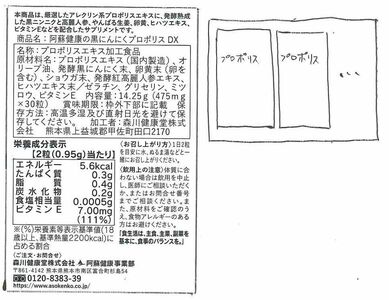 本品は、厳選したアレクリン系プロポリスエキスに、発酵熟成
した黒ニンニクと高麗人参、やんばる生姜、卵黄、ヒハツエキス、
ビタミンEなどを配合したサプリメントです。
商品名:阿蘇健康の黒にんにくプロポリス DX
名称:プロポリスエキス加工食品
原材料名:プロポリスエキス(国内製造)、オ
リーブ油、発酵黒にんにく末、卵黄末(卵を
含む)、ショウガ末、発酵紅高麗人参エキス、
ヒハツエキス末/ゼラチン、グリセリン、ミツ
ロウ、ビタミンE 内容量:14.25g(475mg
×30粒) 賞味期限:枠外下部に記載 保存
方法:高温多湿及び直射日光を避けて保
存してください。 加工者:森川健康堂株式
会社 熊本県上益城郡甲佐町田口2170
栄養成分表示
[2粒(0.95g)当たり]
エネルギー 5.6kcal
たんぱく質 0.3g
脂質 0.4g
炭水化物 0.2g
食塩相当量 0.0005g
ビタミンE 7.00mg
(111%)
※(%)栄養素等表示基準値(18
歳以上、基準熱量2200kcal)に
占める割合
(お召し上がり方)1日2粒
を目安に水、ぬるま湯などと一緒
にお召し上がりください。
(飲用上の注意)体質に合
わない場合は飲用を中止
し、医師にご相談いただく
か、またはお問合せ番号
までご相談ください。また、
原材料をご確認のうえ、
食物アレルギーのある方
はお避けください。
「食生活は、主食、主菜、副菜を
基本に、食事のバランスを。」
(ご注文・お問合せ)
森川健康堂株式会社 阿蘇健康事業部
〒861-4142 熊本県熊本市南区富合町杉島54
0120-8383-39
https://www.asokenko.co.jp
プロポリス
プロポリス
...